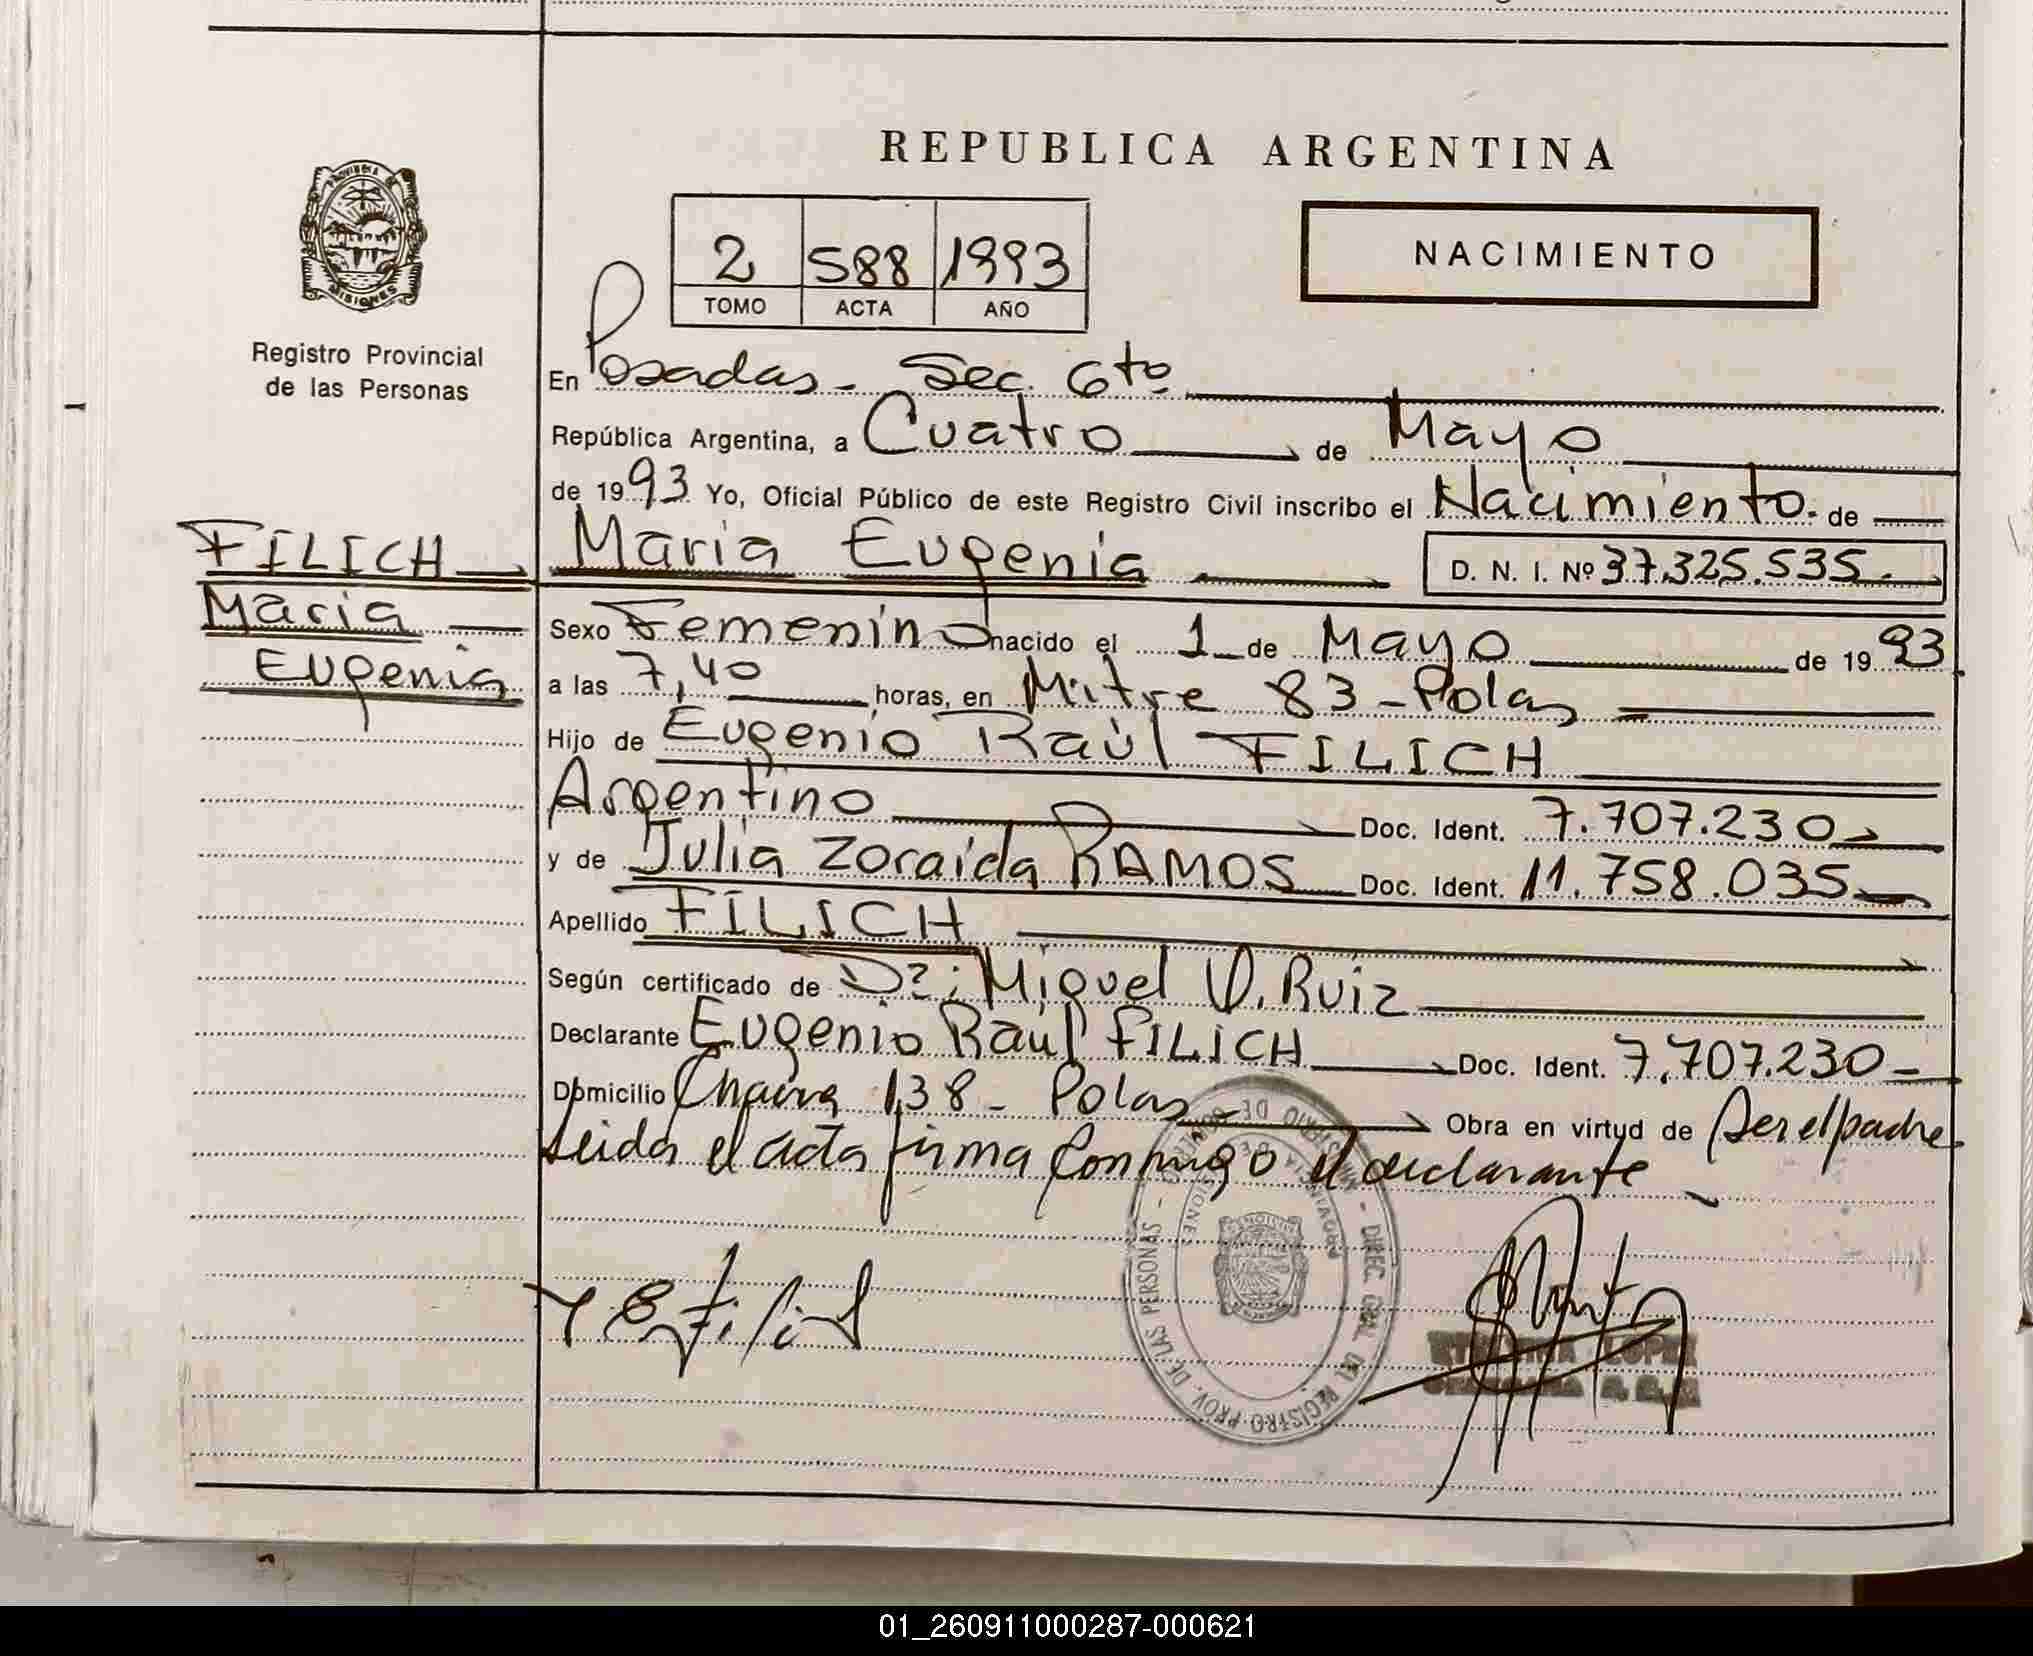 REPUBLICA ARGENTINA
PROVINCIA DE
MISIONES
Registro Provincial
de las Personas
2 588 1993
TOMO ACTA AÑO
NACIMIENTO
En Posadas - Sec. 6to
República Argentina, a Cuatro de Mayo
de 1993 Yo, Oficial Público de este Registro Civil inscribo el Nacimiento. de
FILICH
Maria
Eugenia
Maria Eugenia D. N. I. Nº 37.325.535.
Sexo Femenino nacido el 1 de Mayo de 1993
a las 7,40 horas, en Mitre 83 - Polas
Hijo de Eugenio Raúl FILICH
Argentino Doc. Ident. 7.707.230
y de Julia Zoraida RAMOS Doc. Ident. 11.758.035
Apellido FILICH
Según certificado de Dr: Miguel Ruiz
Declarante Eugenio Raúl FILICH Doc. Ident. 7.707.230
Domicilio 138 - Polas - Obra en virtud de ser el padre
leida el acta firma conmigo el declarante
MINISTERIO DE GOBIERNO - DIREC. GRAL DEL REGISTRO PROV. DE LAS PERSONAS -
PROVINCIA DE MISIONES
LOPEZ
01_260911000287-000621